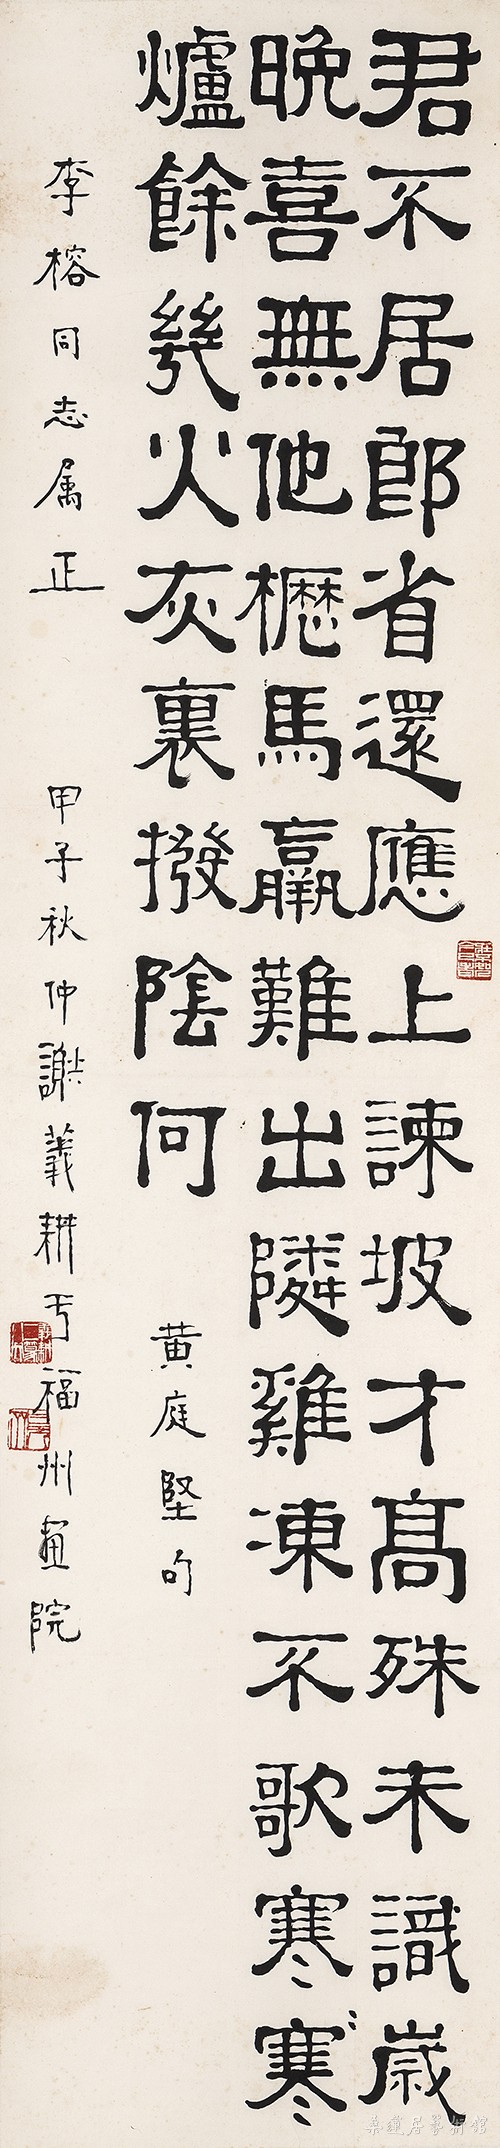 君不居郎省還應上諫坡才髙殊未識歲
晚喜無他櫪馬羸難出隣雞凍不歌寒寒
爐餘幾火灰裏撥陰何
黄庭堅句
李榕同志属正
甲子秋仲謝義耕于福州畫院